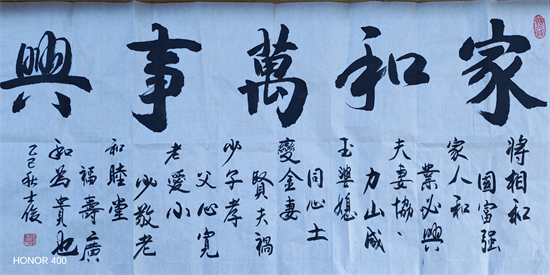 家和萬事興
將相和
國富强
家人和
業必興
夫妻協
力山成
玉婆媳
同心土
變金妻
賢夫禍
少子孝
父心寬
老愛小
少敬老
和睦堂
福壽廣
和為貴也
乙巳秋士俊
HONOR 400